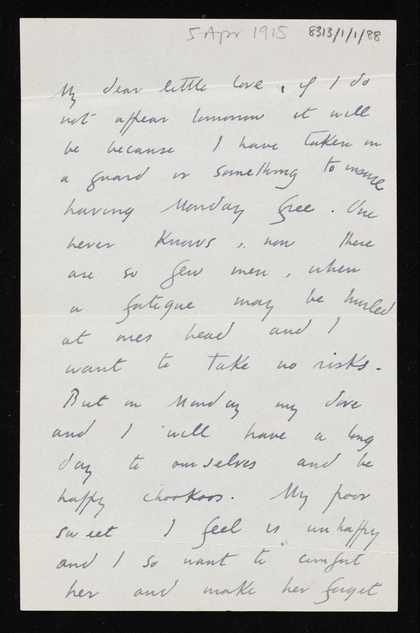 5 Apr 1915 8313/1/1/88
My dear little love, if I do
not appear tomorrow it will
be because I have taken on
a guard or something to insure
having Monday free. One
never knows, now there
are so few men, when
a fatigue may be hurled
at ones head and I
want to take no risks.
But on Monday my dove
and I will have a long
day to ourselves and be
happy chookoos. My poor
sweet I feel is unhappy
and I so want to comfort
her and make her forget